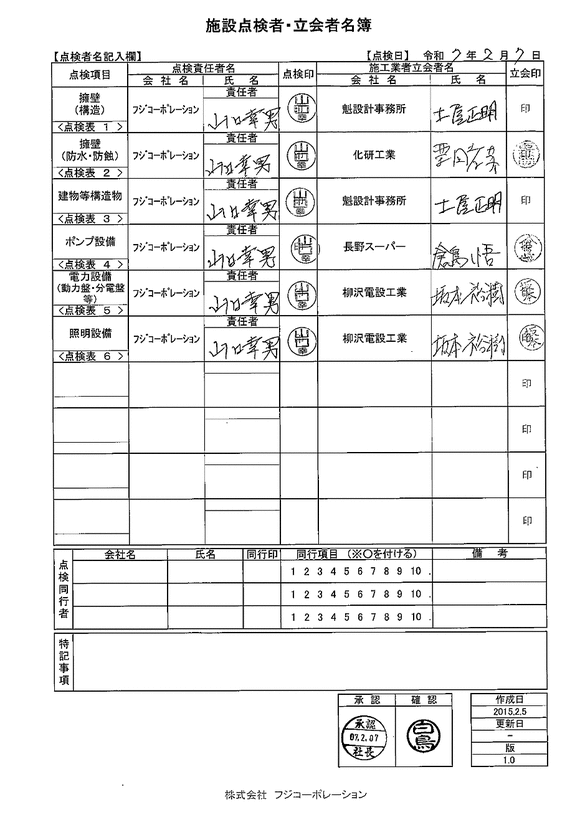 施設点検者・立会者名簿
【点検者名記入欄】 【点検日】 令和 7 年 2 月 7 日
点検項目 点検責任者名 点検印 施工業者立会者名 立会印
会社名 氏名 会社名 氏名
擁壁
(構造)
<点検表 1 > フジコーポレーション 責任者 山口幸男 魁設計事務所 土屋正明 印
擁壁
(防水・防蝕)
<点検表 2 > フジコーポレーション 責任者 山口幸男 化研工業
建物等構造物
<点検表 3 > フジコーポレーション 責任者 山口幸男 魁設計事務所 土屋正明 印
ポンプ設備
<点検表 4 > フジコーポレーション 責任者 山口幸男 長野スーパー
電力設備
(動力盤・分電盤
等)
<点検表 5 > フジコーポレーション 責任者 山口幸男 柳沢電設工業 坂本裕樹
照明設備
<点検表 6 > フジコーポレーション 責任者 山口幸男 柳沢電設工業 坂本裕樹
印
印
印
印
点検同行者 会社名 氏名 同行印 同行項目 (※○を付ける) 備考
1 2 3 4 5 6 7 8 9 10 .
1 2 3 4 5 6 7 8 9 10 .
1 2 3 4 5 6 7 8 9 10 .
特記事項
承認 確認 作成日
2015.2.5
承認 07.2.07 社長 白鳥 更新日
-
版
1.0
株式会社 フジコーポレーション